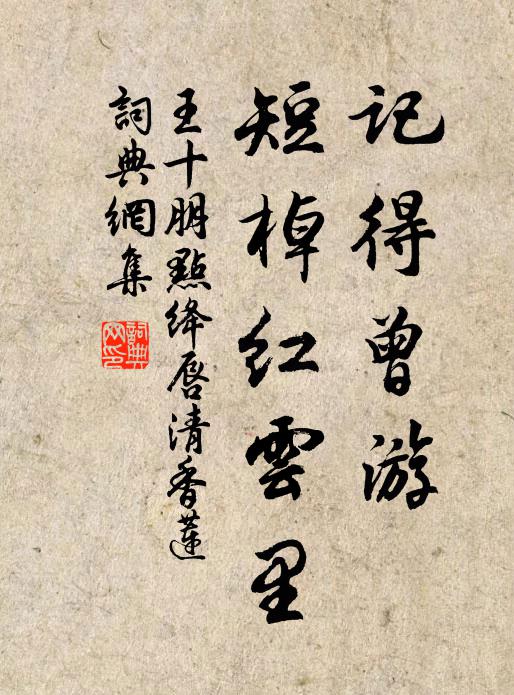 记得曾游
短棹红雲里
王十朋點绛唇清香蓮
詞典網集
詞典網印